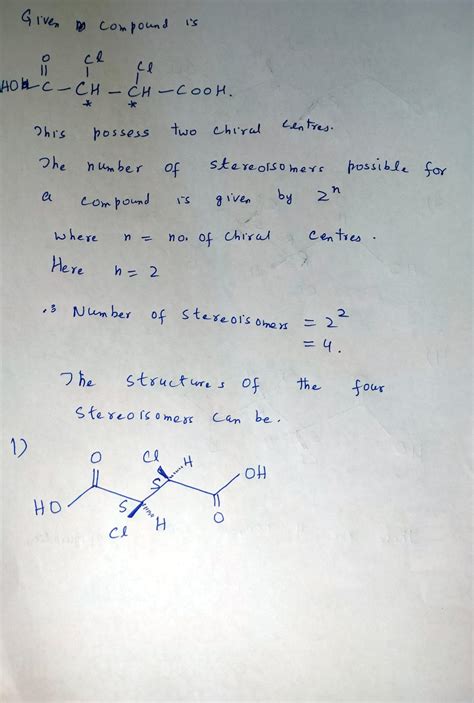 Given compound is
O Cl Cl
HO-C-CH-CH-COOH.
* *
This possess two chiral centres.
The number of stereoisomers possible for
a compound is given by 2ⁿ
where n = no. of chiral centres.
Here n = 2
∴ Number of stereoisomers = 2²
= 4.
The structures of the four
stereoisomers can be.
1)
O Cl H OH
S
HO S H O
Cl